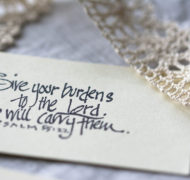 Give your burdens
to the Lord.
He will carry them.
PSALM 55:22